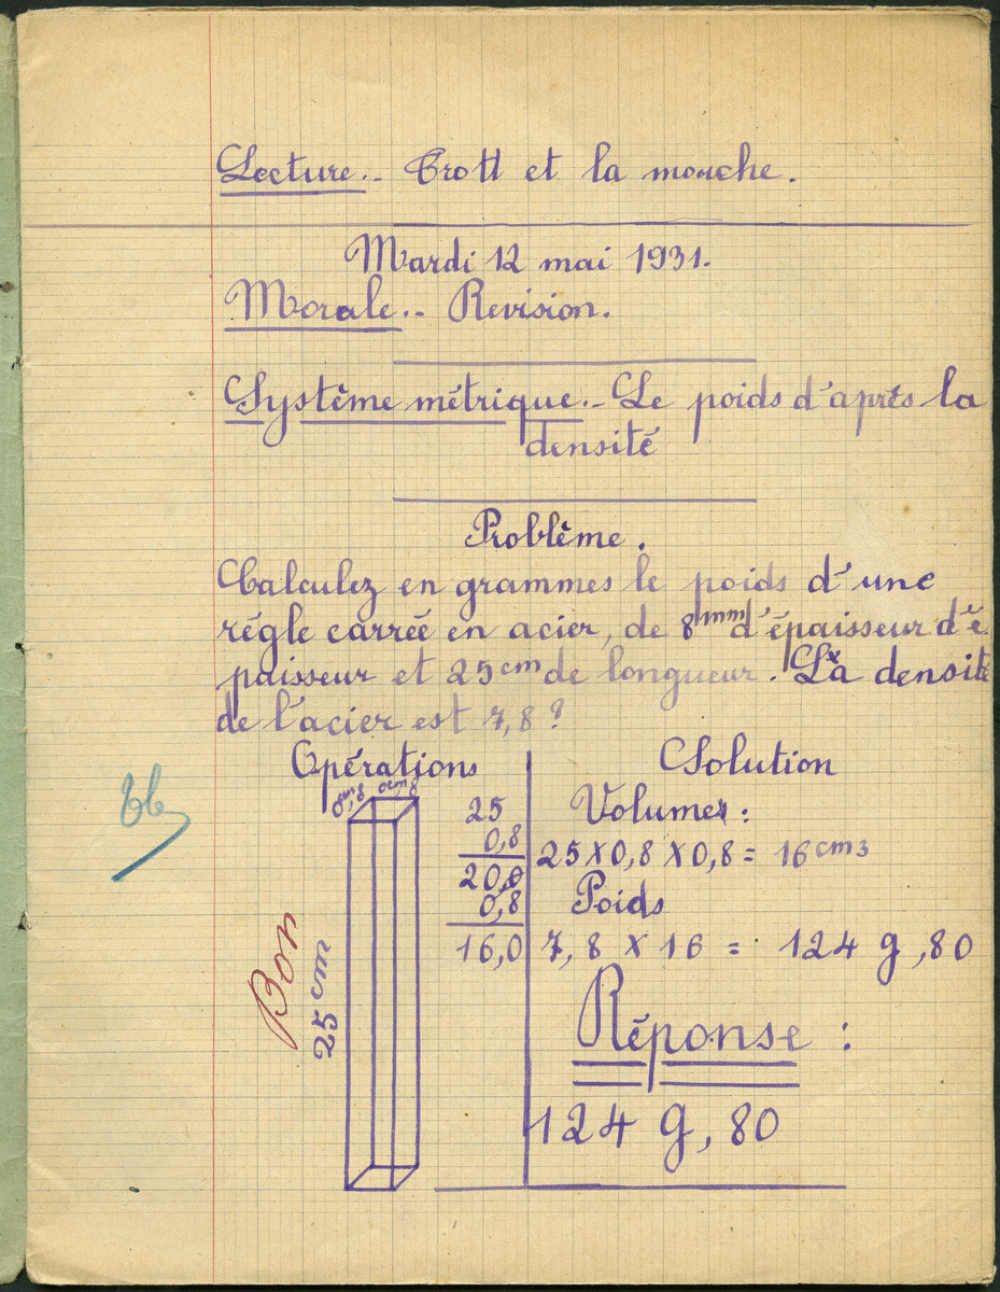 Lecture.- Trott et la mouche.
Mardi 12 mai 1931.
Morale.- Revision.
Système métrique.- Le poids d'après la
densité
Problème.
Calculez en grammes le poids d'une
régle carrée en acier, de 8mm d'épaisseur d'é
paisseur et 25cm de longueur. La densité
de l'acier est 7,8 ?
Opérations
0cm,8 0cm,8
25
0,8
20,0
0,8
16,0
25 cm
Bon
tb
Solution
Volume :
25 X 0,8 X 0,8 = 16 cm3
Poids
7,8 X 16 = 124 g ,80
Réponse :
124 g, 80